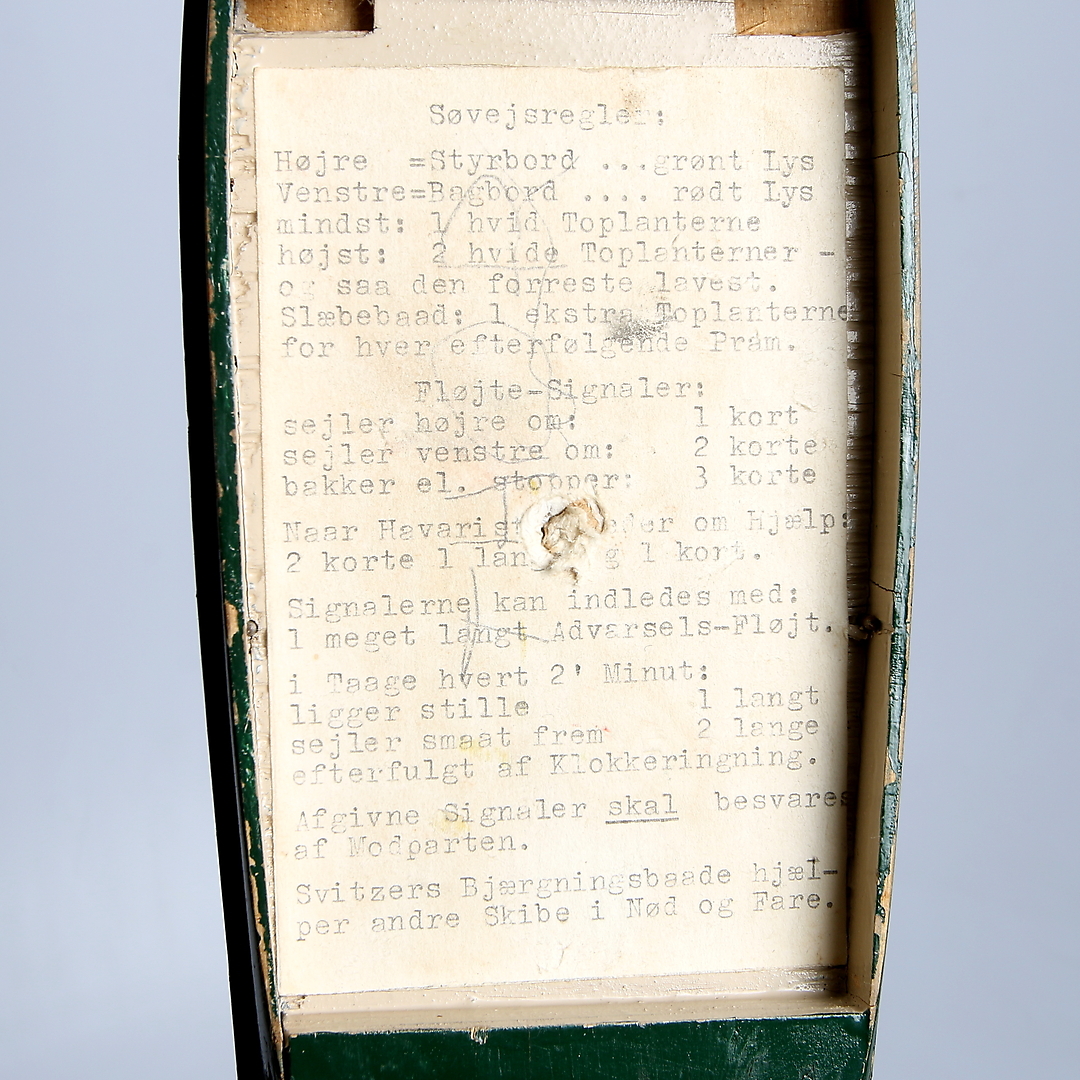 Søvejsregler:
Højre =Styrbord ...grønt Lys
Venstre=Bagbord .... rødt Lys
mindst: 1 hvid Toplanterne
højst: 2 hvide Toplanterner -
og saa den forreste lavest.
Slæbebaad: 1 ekstra Toplanterne
for hver efterfølgende Pram.
Fløjte-Signaler:
sejler højre om: 1 kort
sejler venstre om: 2 korte
bakker el. stopper: 3 korte
Naar Havarist om Hjælp:
2 korte 1 lang 1 kort.
Signalerne kan indledes med:
1 meget langt Advarsels-Fløjt.
i Taage hvert 2' Minut:
ligger stille 1 langt
sejler smaat frem 2 lange
efterfulgt af Klokkeringning.
Afgivne Signaler skal besvares
af Modparten.
Svitzers Bjærgningsbaade hjæl-
per andre Skibe i Nød og Fare.